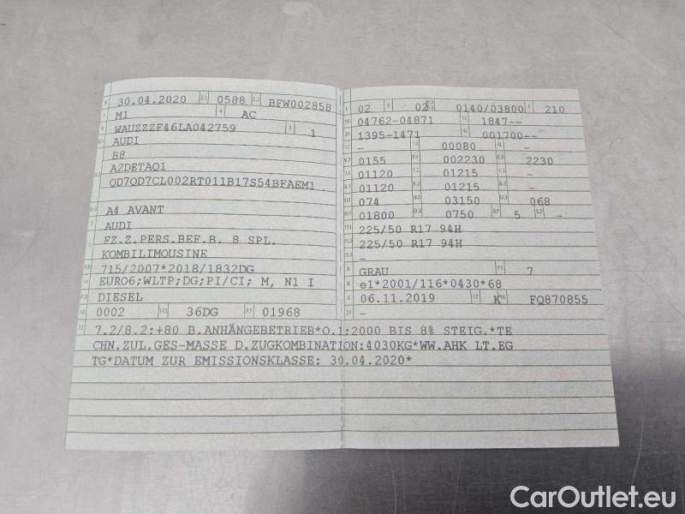 30.04.2020 0588 BFW002858
M1 AC
WAUZZZF46LA042759 1
AUDI
B8
A2DETAQ1
QD7QD7CL002RT011B17S54BFAEM1
A4 AVANT
AUDI
FZ.Z.PERS.BEF.B. 8 SPL.
KOMBILIMOUSINE
715/2007*2018/1832DG
EURO6;WLTP;DG;PI/CI; M, N1 I
DIESEL
0002 36DG 01968
02 02 0140/03800 210
04762-04871 1847--
1395-1471 001700--
- 00080 -
0155 002230 2230
01120 01215 -
01120 01215 -
074 03150 068
01800 0750 5 -
225/50 R17 94H
225/50 R17 94H
-
GRAU 7
e1*2001/116*0430*68
06.11.2019 K FQ870855
-
7.2/8.2:+80 B.ANHÄNGEBETRIEB*O.1:2000 BIS 8% STEIG.*TE
CHN.ZUL.GES-MASSE D.ZUGKOMBINATION:4030KG*WW.AHK LT.EG
TG*DATUM ZUR EMISSIONSKLASSE: 30.04.2020*
CarOutlet.eu